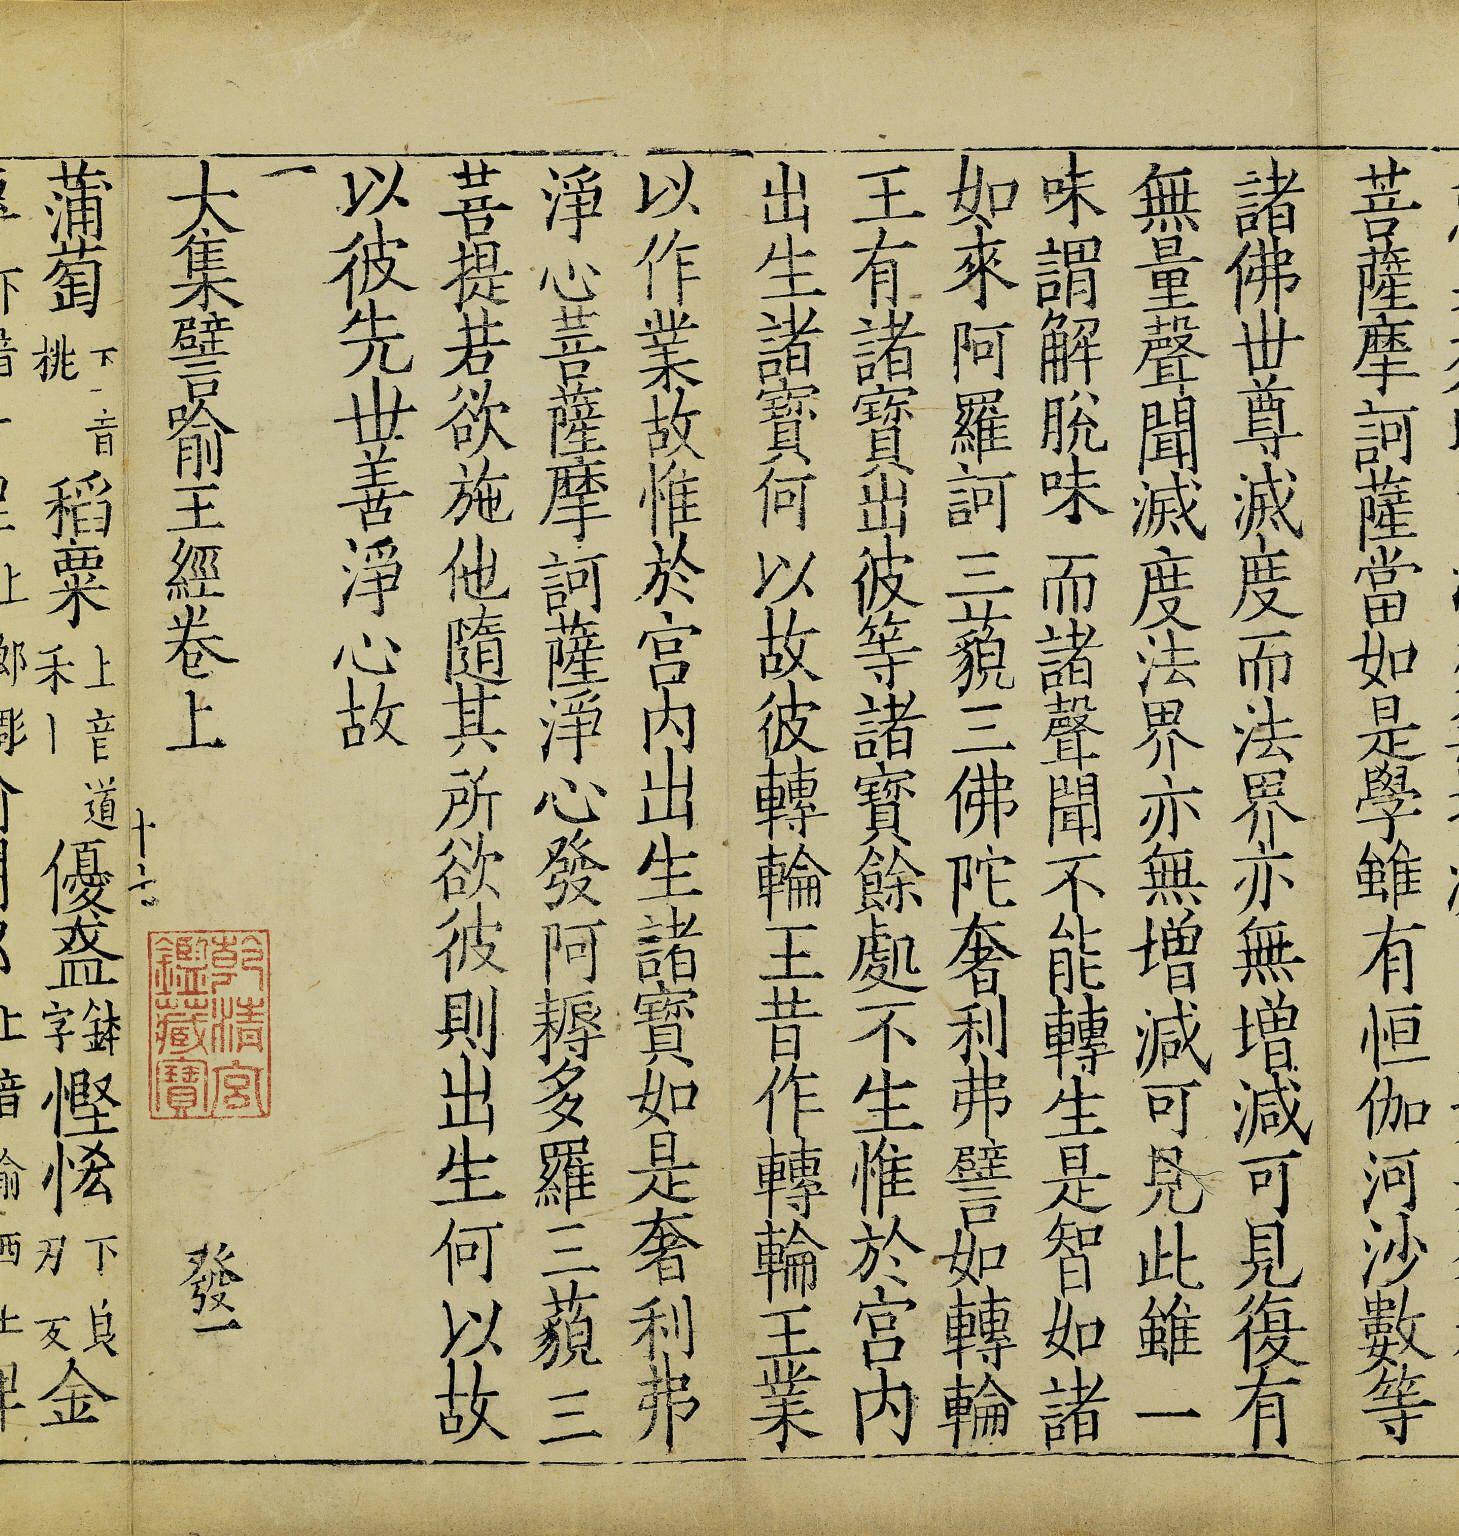 菩薩摩訶薩當如是學雖有恒伽河沙數等
諸佛世尊滅度而法界亦無增減可見復有
無量聲聞滅度法界亦無增減可見此雖一
味謂解脫味而諸聲聞不能轉生是智如諸
如來阿羅訶三藐三佛陀奢利弗譬如轉輪
王有諸寶出彼等諸寶餘處不生惟於宮内
出生諸寶何以故彼轉輪王昔作轉輪王業
以作業故惟於宮内出生諸寶如是奢利弗
淨心菩薩摩訶薩淨心發阿耨多羅三藐三
菩提若欲施他隨其所欲彼則出生何以故
以彼先世善淨心故
一
大集譬喻王經卷上
發一
乾清宮鑑藏寶
蒲萄下音桃稻粟上音道禾丨優盋鉢字慳悋下良刃反金